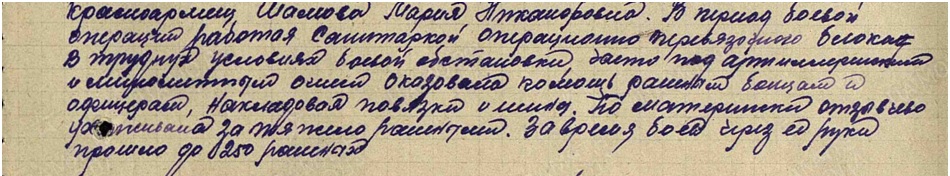 Красноармеец Шамова Мария Никаноровна. В период боевой
операций работая Санитаркой операционно перевязочного блока
В трудных условиях боевой обстановки, часто под артиллерийским
и минометным огнем оказовала помощь раненым бойцам и
офицерам, накладовая повязки и шины. По матерински отзывчево
ухаживала за тяжело ранеными. За время боев через ее руки
прошло до 250 раненых